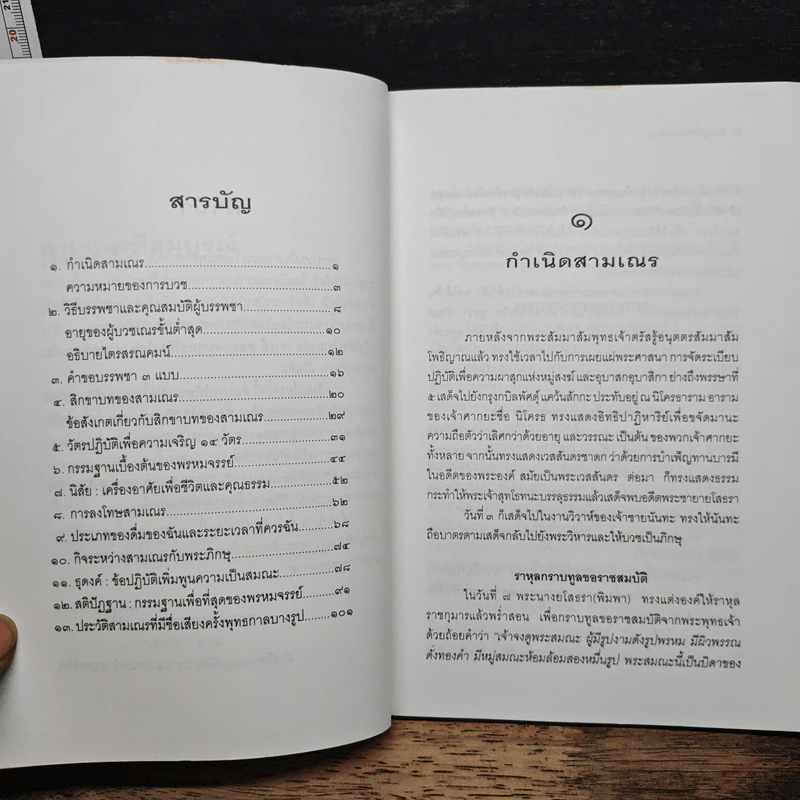 สารบัญ
๑. กำเนิดสามเณร...............................................๑
ความหมายของการบวช...............................................๓
๒. วิธีบรรพชาและคุณสมบัติผู้บรรพชา.....................๘
อายุของผู้บวชเณรขั้นต่ำสุด..............................๑๐
อธิบายไตรสรณคมน์..............................๑๒
๓. คำขอบรรพชา ๓ แบบ..............................๑๖
๔. สิกขาบทของสามเณร..............................๒๐
ข้อสังเกตเกี่ยวกับสิกขาบทของสามเณร...............๒๙
๕. วัตรปฏิบัติเพื่อความเจริญ ๑๔ วัตร.....................๓๑
๖. กรรมฐานเบื้องต้นของพรหมจรรย์.....................๔๔
๗. นิสัย : เครื่องอาศัยเพื่อชีวิตและคุณธรรม...............๕๒
๘. การลงโทษสามเณร..............................๖๒
๙. ประเภทของดื่มของฉันและระยะเวลาที่ควรฉัน.......๖๘
๑๐. กิจระหว่างสามเณรกับพระภิกษุ.....................๗๔
๑๑. ธุดงค์ : ข้อปฏิบัติเพิ่มพูนความเป็นสมณะ..........๗๘
๑๒. สติปัฏฐาน : กรรมฐานเพื่อที่สุดของพรหมจรรย์.......๙๑
๑๓. ประวัติสามเณรที่มีชื่อเสียงครั้งพุทธกาลบางรูป.....๑๐๑
๑
กำเนิดสามเณร
ภายหลังจากพระสัมมาสัมพุทธเจ้าตรัสรู้อนุตตรสัมมาสัม
โพธิญาณแล้ว ทรงใช้เวลาไปกับการเผยแผ่พระศาสนา การจัดระเบียบ
ปฏิบัติเพื่อความผาสุกแห่งหมู่สงฆ์ และอุบาสกอุบาสิกา ย่างถึงพรรษาที่
๕ เสด็จไปยังกรุงกบิลพัศดุ์ แคว้นสักกะ ประทับอยู่ ณ นิโครธาราม อาราม
ของเจ้าศากยะชื่อ นิโครธ ทรงแสดงอิทธิปาฏิหาริย์เพื่อขจัดมานะ
ความถือตัวว่าเลิศกว่าด้วยอายุ และวรรณะ เป็นต้น ของพวกเจ้าศากยะ
ทั้งหลาย จากนั้นทรงแสดงเวสสันดรชาดก ว่าด้วยการบำเพ็ญทานบารมี
ในอดีตของพระองค์ สมัยเป็นพระเวสสันดร ต่อมา ก็ทรงแสดงธรรม
กระทำให้พระเจ้าสุทโธทนะบรรลุธรรมแล้วเสด็จพบอดีตพระชายายโสธรา
วันที่ ๓ ก็เสด็จไปในงานวิวาห์ของเจ้าชายนันทะ ทรงให้นันทะ
ถือบาตรตามเสด็จกลับไปยังพระวิหารและให้บวชเป็นภิกษุ
ราหุลกราบทูลขอราชสมบัติ
ในวันที่ ๗ พระนางยโสธรา(พิมพา) ทรงแต่งองค์ให้ราหุล
ราชกุมารแล้วพร่ำสอน เพื่อกราบทูลขอราชสมบัติจากพระพุทธเจ้า
ด้วยถ้อยคำว่า "เจ้าจงดูพระสมณะ ผู้มีรูปงามดังรูปพรหม มีผิวพรรณ
ดั่งทองคำ มีหมู่สมณะห้อมล้อมสองหมื่นรูป พระสมณะนี้เป็นบิดาของ